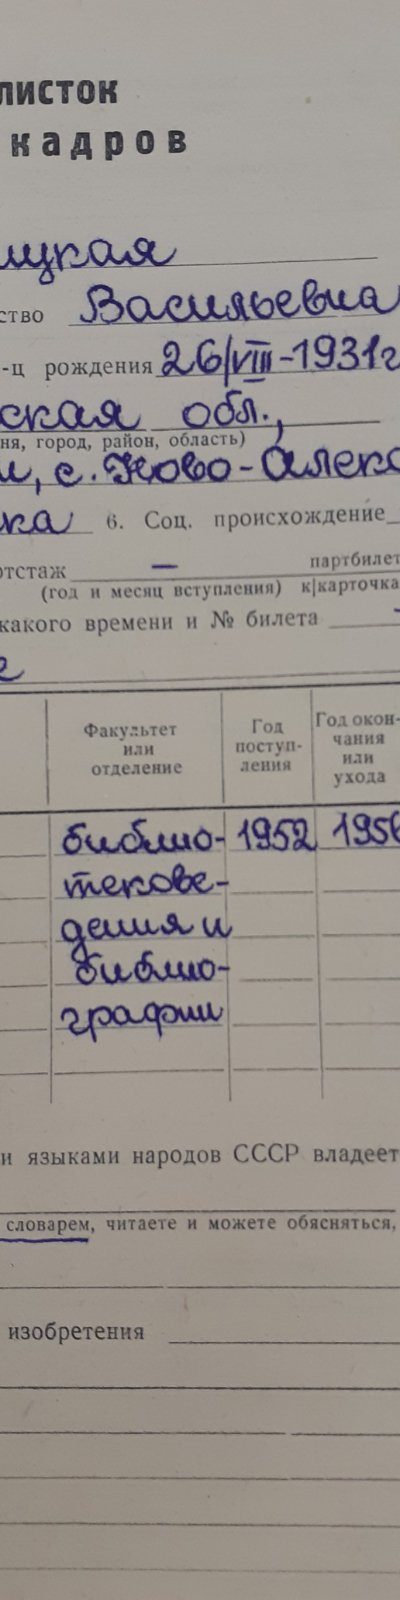 листок
кадров
ицкая
ство Васильевна
-ц рождения 26/VIII-1931г
ская обл.,
ня, город, район, область)
и, с. Ново-Алекс
ка 6. Соц. происхождение
ртстаж — партбилет
(год и месяц вступления) к|карточка
какого времени и № билета
е
Факультет или отделение
Год поступ-ления
Год окон-чания или ухода
библио- 1952 1956
текове-
дения и
библио-
графии
и языками народов СССР владеет
словарем, читаете и можете обясняться,
изобретения